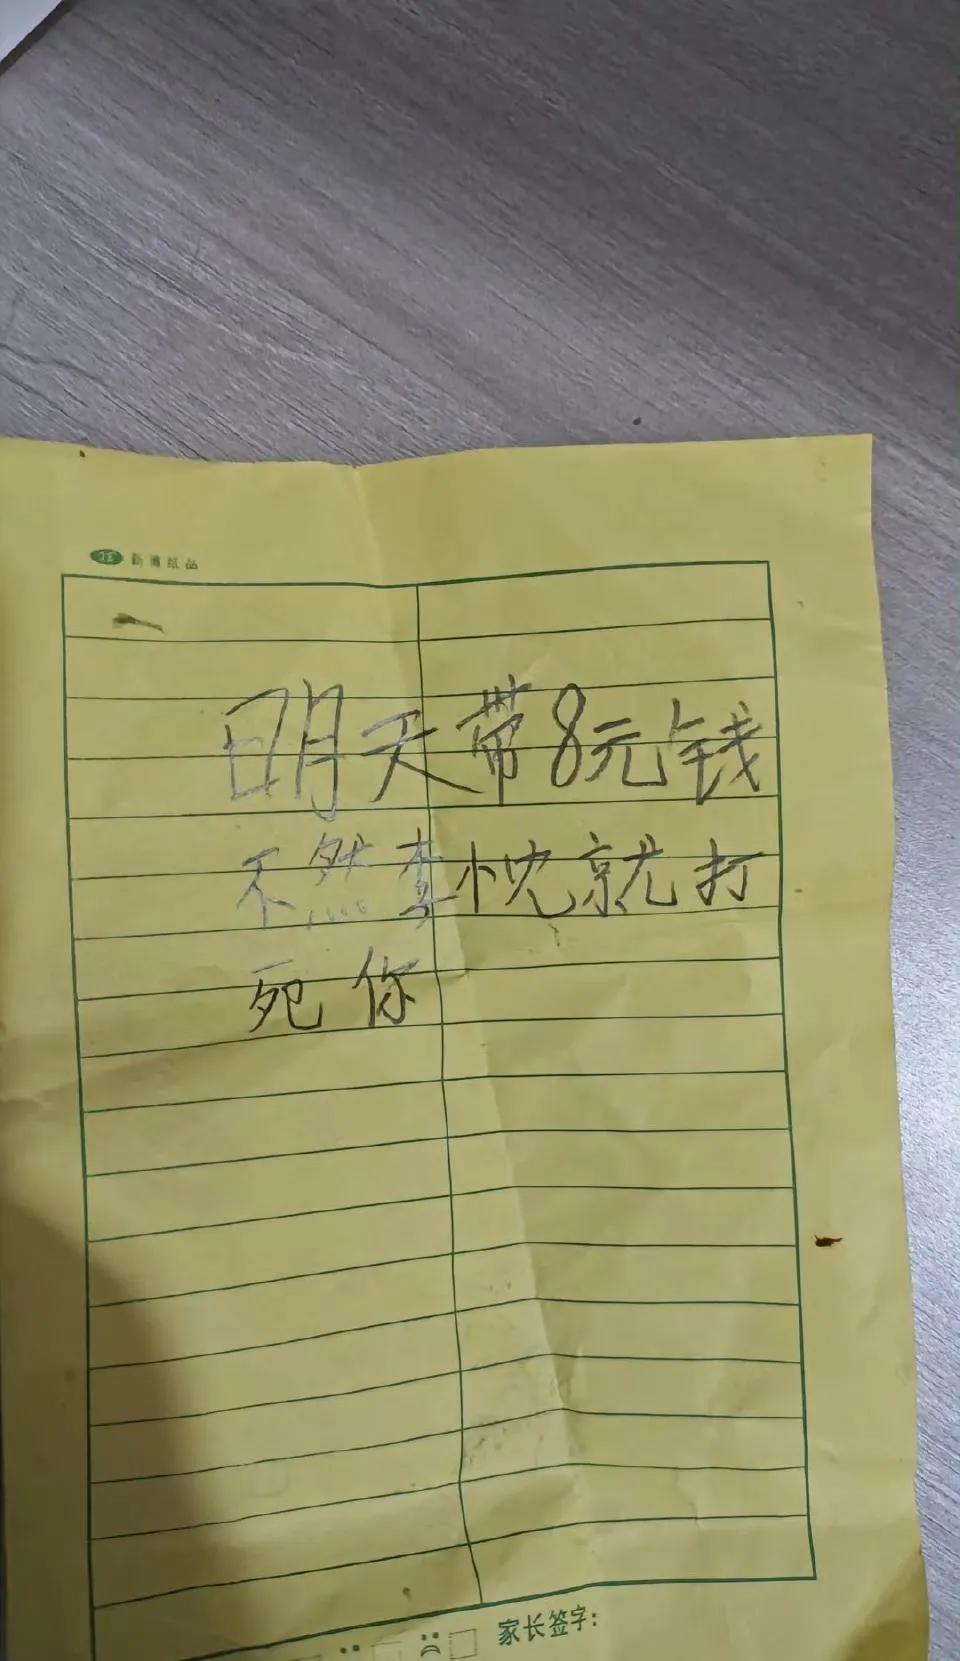 新博纸品
明天带8元钱
不然李小忱就打
死你
家长签字: